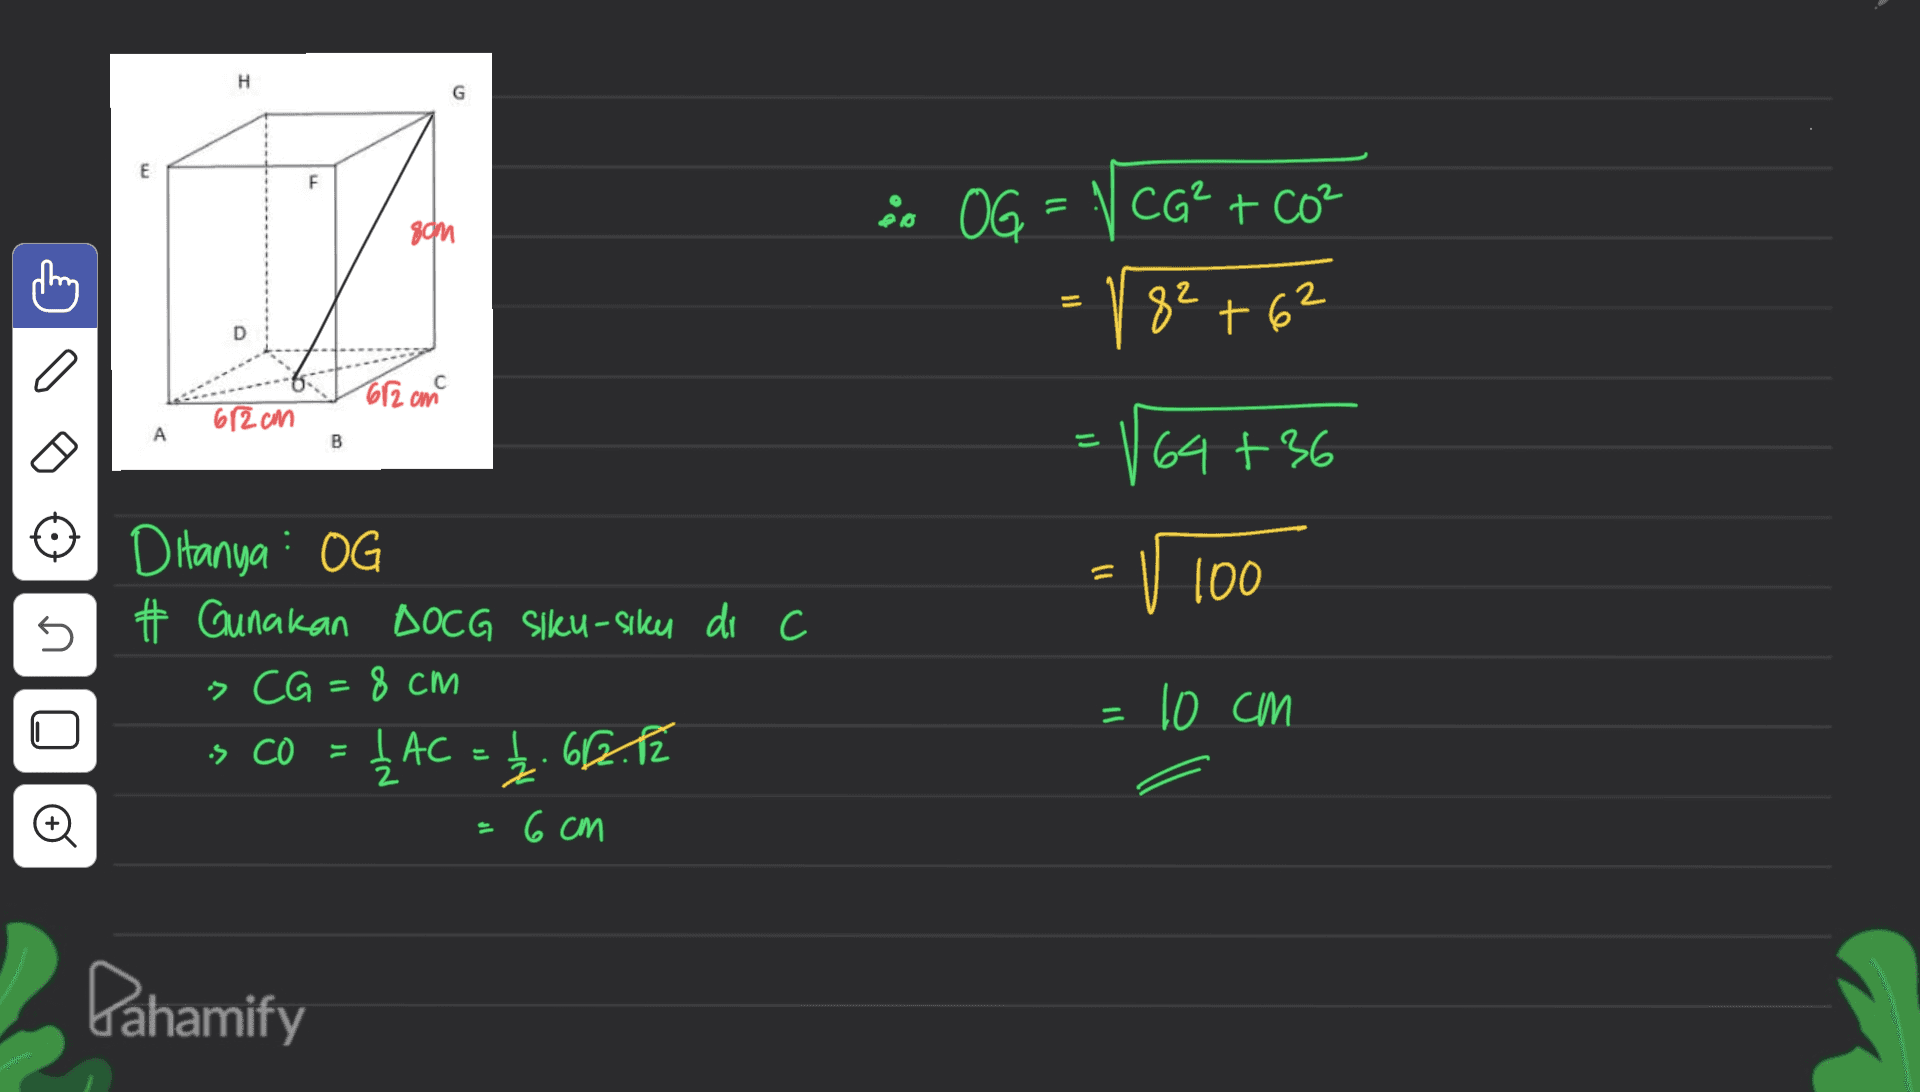 H
G
E
F
8cm
D
O
6√2 cm
C
6√2 cm
A
B
Ditanya : OG
# Gunakan ΔOCG siku-siku di C
> CG = 8 cm
> CO = 1/2 AC = 1/2 . 6√2.√2
= 6 cm
∴ OG = √CG² + CO²
= √8² + 6²
= √64 + 36
= √100
= 10 cm
Pahamify